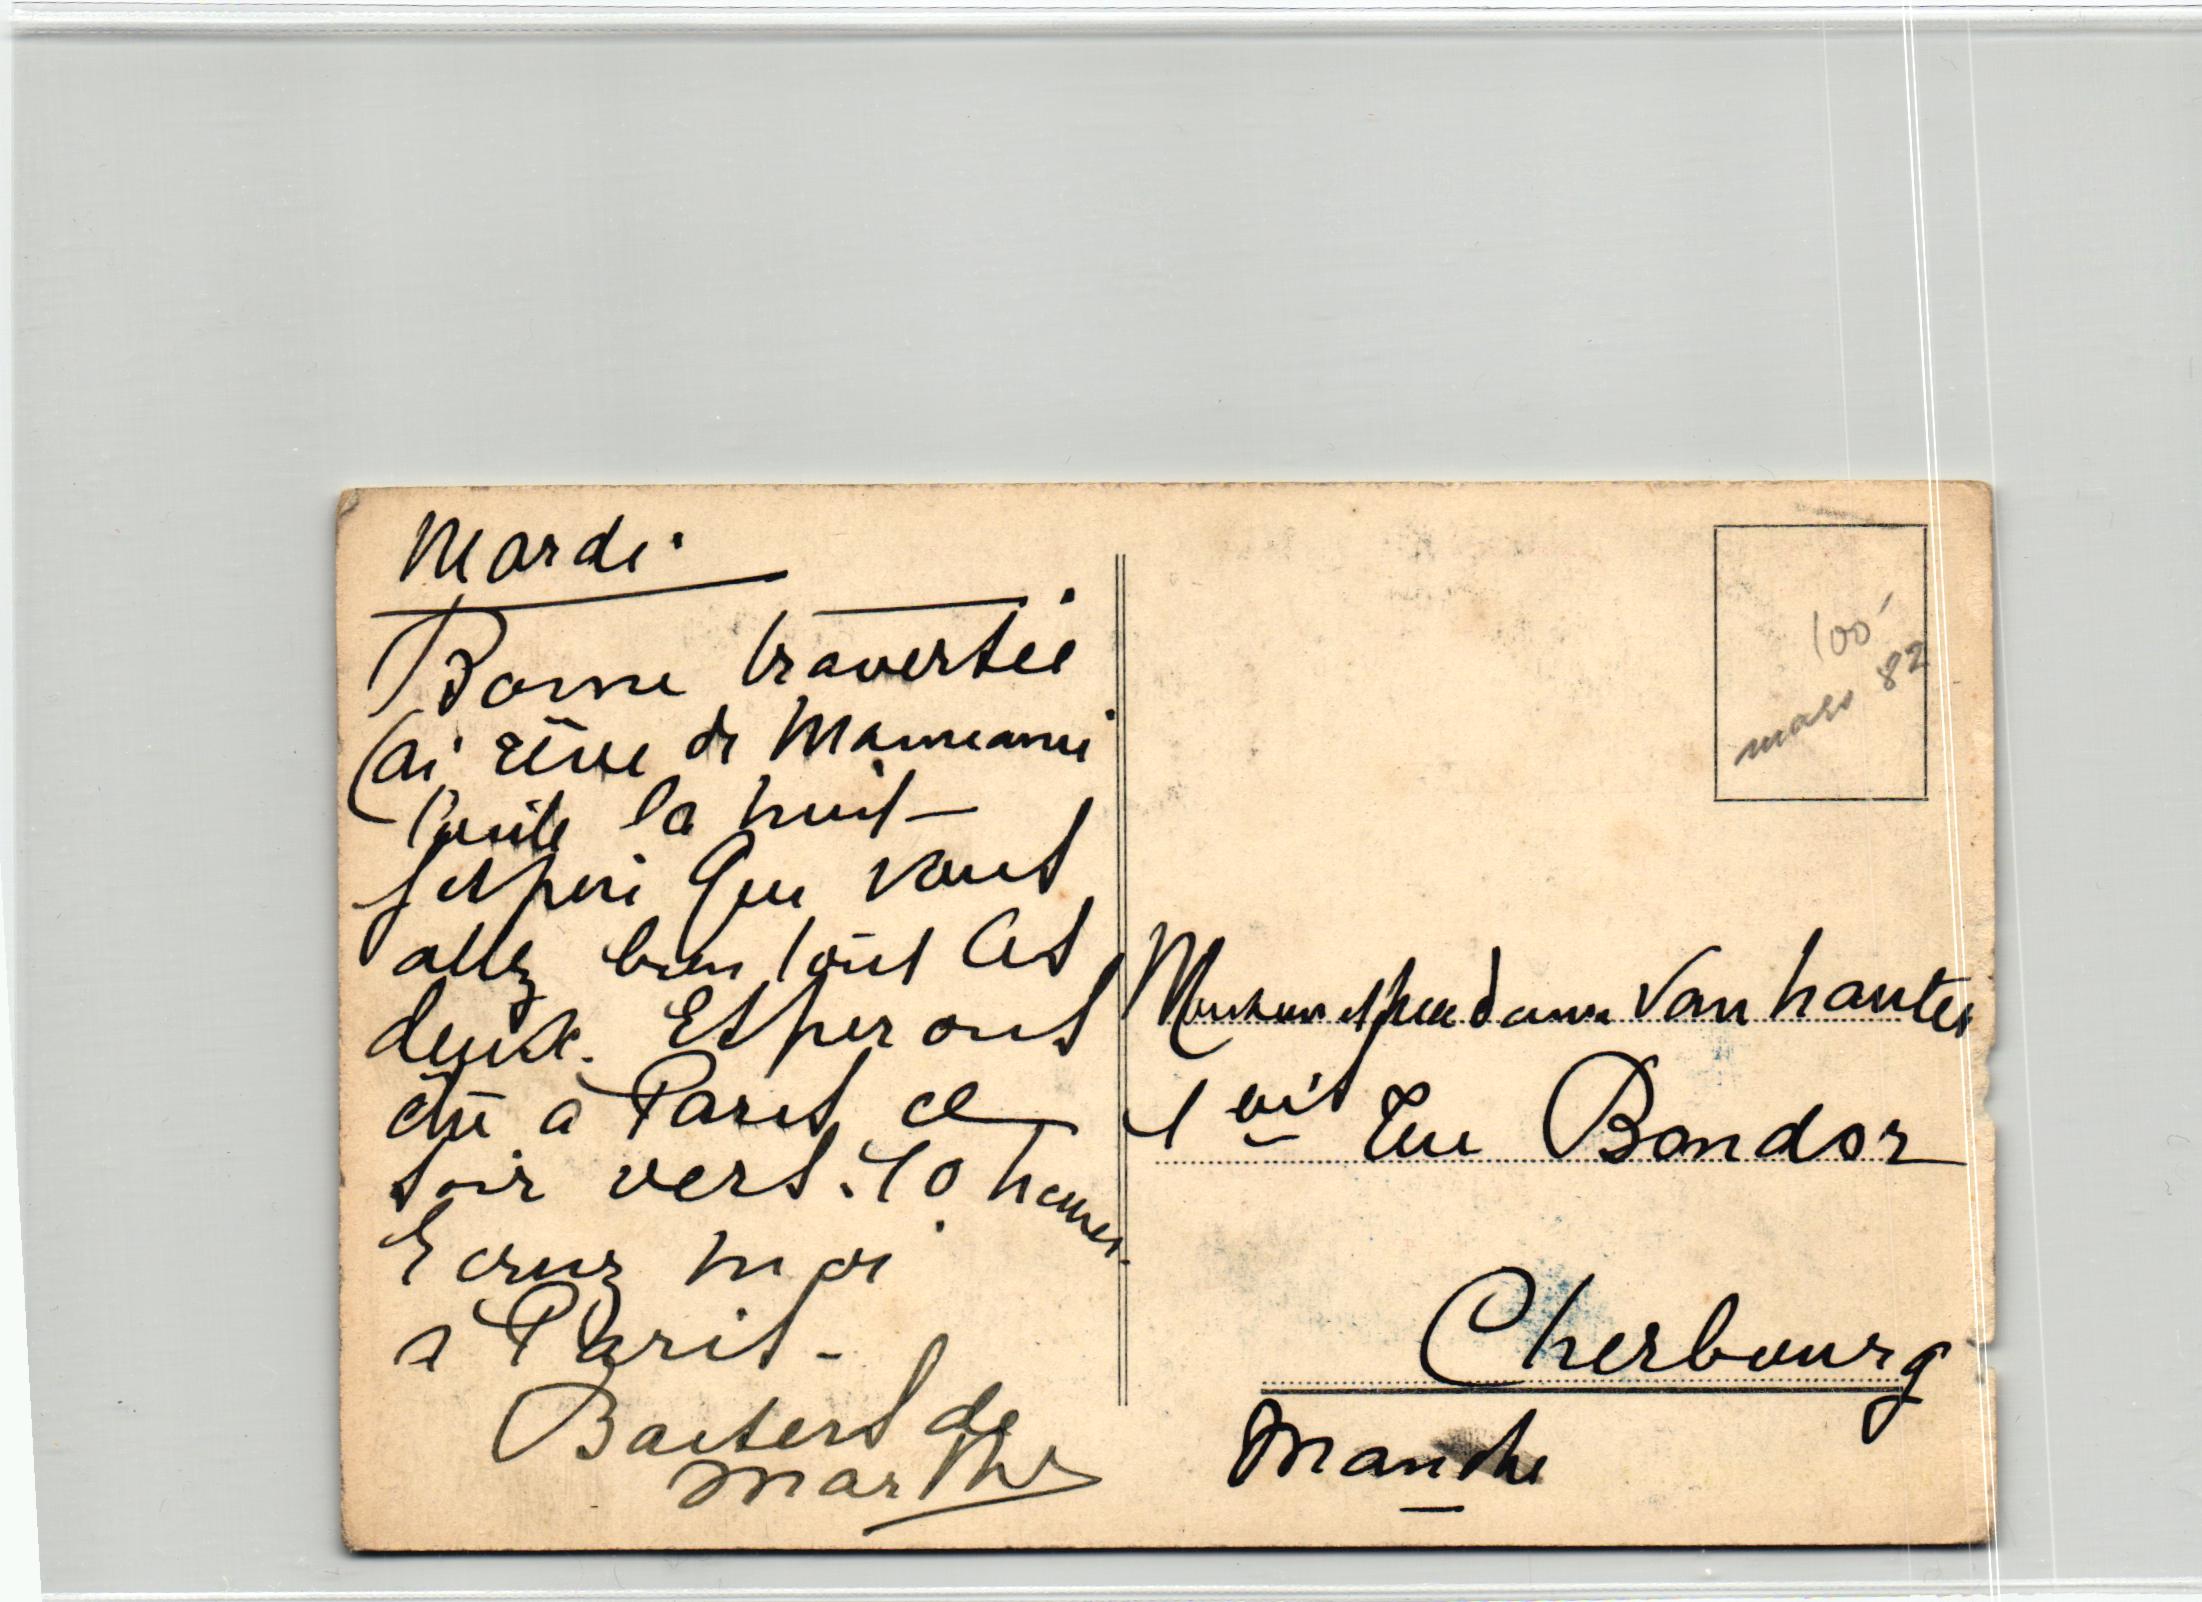 Mardi.
Bonne traversée
J'ai rêvé de
toute la nuit
J'espère que vous
allez bien tous les
deux. Esperons
être à Paris ce
soir vers 10 heures.
Ecrivez moi
a Paris -
Baisers de
Marthe
100
mars 82
Monsieur et Madame Vanhautes
1 bis rue Bondor
Cherbourg
Manche